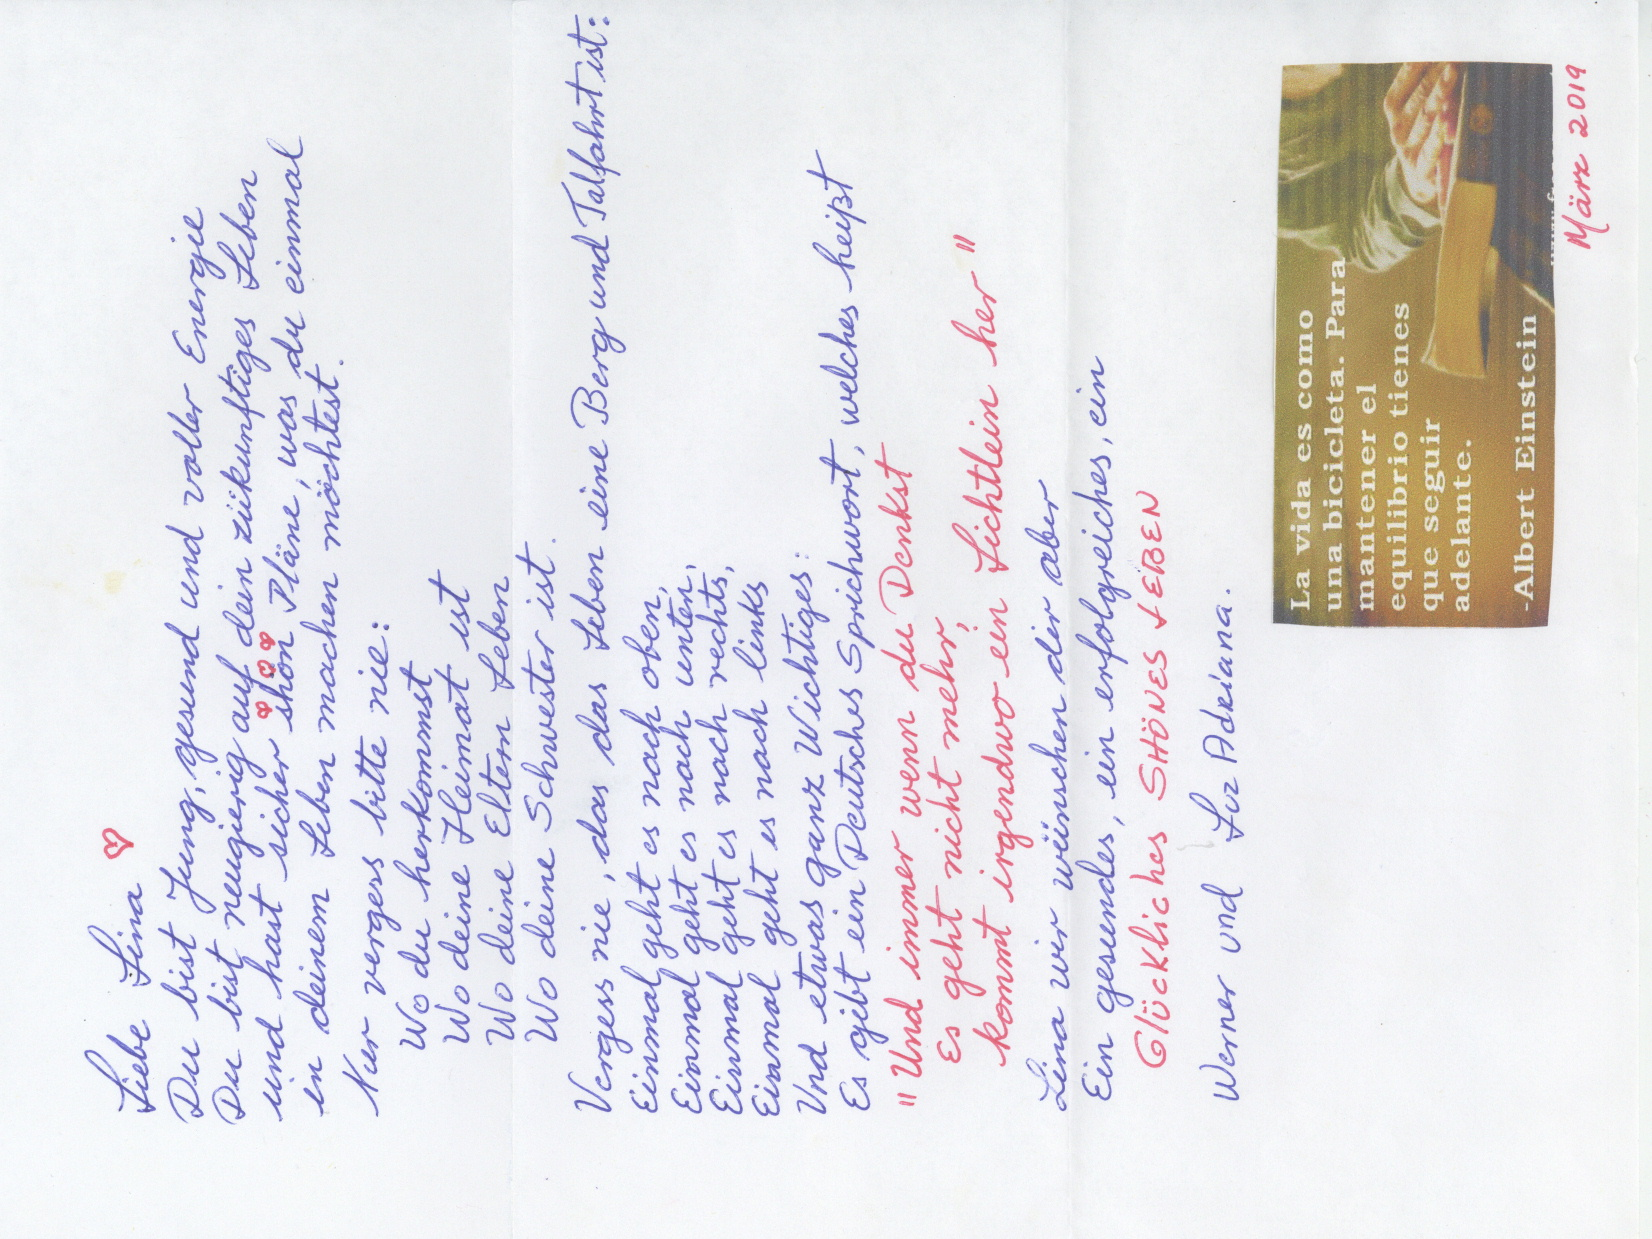 Liebe Lina
Du bist Jung, gesund und voller Energie
Du bist neugierig auf dein zükunftiges Leben
und hast sicher shön Pläne, was du einmal
in deinem Leben machen möchtest.
Nur vergess bitte nie:
Wo du herkommst
Wo deine Heimat ist
Wo deine Eltern Leben
Wo deine Schwester ist.
Vergess nie, das das Leben eine Berg und Talfahrt ist:
Einmal geht es nach oben,
Einmal geht es nach unten,
Einmal geht es nach rechts,
Einmal geht es nach links
Und etwas ganz Wichtiges:
Es gibt ein Deutsches Sprichwort, welches heißt
"Und immer wenn du Denkst
Es geht nicht mehr,
kommt irgendwo ein Lichtlein her"
Lina wir wünschen dir aber
Ein gesundes, ein erfolgreiches, ein
Glückliches SHÖNES LEBEN
Werner und Luz Adriana.
La vida es como
una bicicleta. Para
mantener el
equilibrio tienes
que seguir
adelante.
-Albert Einstein
März 2019